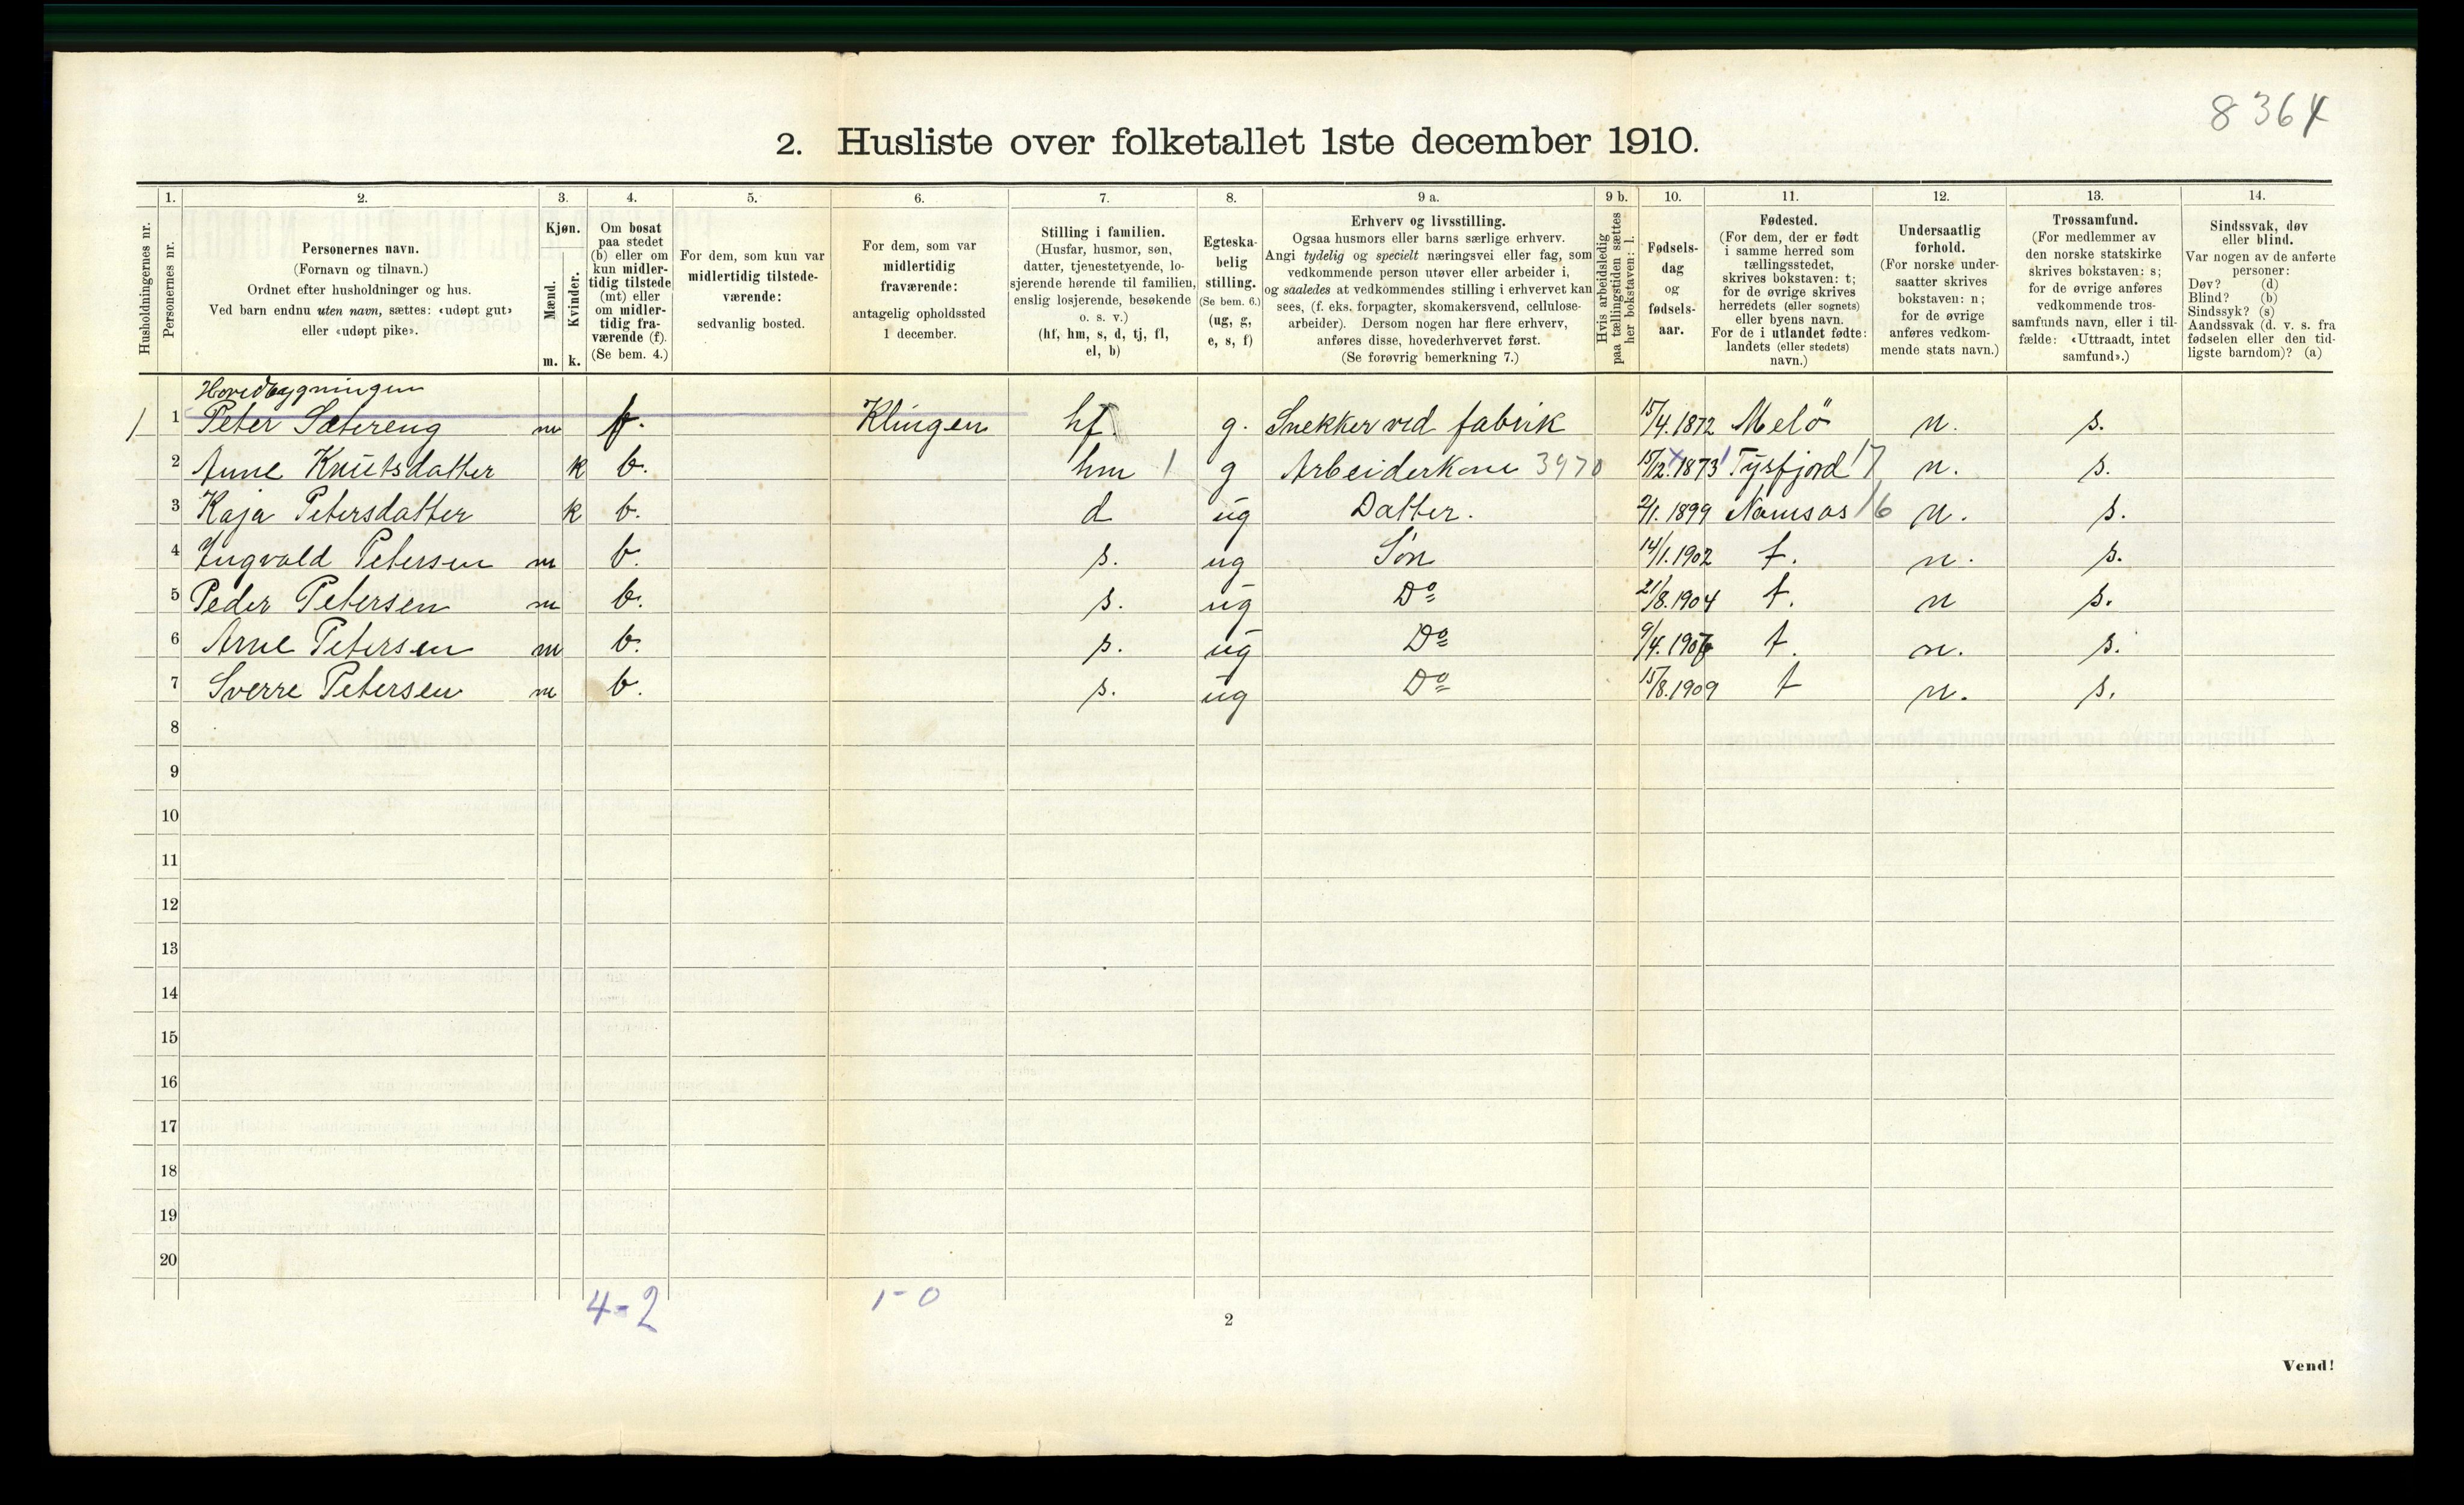 8364
2. Husliste over folketallet 1ste december 1910.
1. 2. 3. 4. 5. 6. 7. 8. 9 a. 9 b. 10. 11. 12. 13. 14.
Husholdningernes nr.
Personernes nr.
Personernes navn.
(Fornavn og tilnavn.)
Ordnet efter husholdninger og hus.
Ved barn endnu uten navn, sættes: «udøpt gut»
eller «udøpt pike».
Kjøn.
Mænd.
Kvinder.
m. k.
Om bosat
paa stedet
(b) eller om
kun midler-
tidig tilstede
(mt) eller
om midler-
tidig fra-
værende (f).
(Se bem. 4.)
For dem, som kun var
midlertidig tilstede-
værende:
sedvanlig bosted.
For dem, som var
midlertidig
fraværende:
antagelig opholdssted
1 december.
Stilling i familien.
(Husfar, husmor, søn,
datter, tjenestetyende, lo-
sjerende hørende til familien,
enslig losjerende, besøkende
o. s. v.)
(hf, hm, s, d, tj, fl,
el, b)
Egteska-
belig
stilling.
(Se bem. 6.)
(ug, g,
e, s, f)
Erhverv og livsstilling.
Ogsaa husmors eller barns særlige erhverv.
Angi tydelig og specielt næringsvei eller fag, som
vedkommende person utøver eller arbeider i,
og saaledes at vedkommendes stilling i erhvervet kan
sees, (f. eks. forpagter, skomakersvend, cellulose-
arbeider). Dersom nogen har flere erhverv,
anføres disse, hovederhvervet først.
(Se forøvrig bemerkning 7.)
Hvis arbeidsledig
paa tællingstiden sættes
her bokstaven: l.
Fødsels-
dag
og
fødsels-
aar.
Fødested.
(For dem, der er født
i samme herred som
tællingsstedet,
skrives bokstaven: t;
for de øvrige skrives
herredets (eller sognets)
eller byens navn.
For de i utlandet fødte:
landets (eller stedets)
navn.)
Undersaatlig
forhold.
(For norske under-
saatter skrives
bokstaven: n;
for de øvrige
anføres vedkom-
mende stats navn.)
Trossamfund.
(For medlemmer av
den norske statskirke
skrives bokstaven: s;
for de øvrige anføres
vedkommende tros-
samfunds navn, eller i til-
fælde: «Uttraadt, intet
samfund».)
Sindssvak, døv
eller blind.
Var nogen av de anførte
personer:
Døv? (d)
Blind? (b)
Sindssyk? (s)
Aandssvak (d. v. s. fra
fødselen eller den tid-
ligste barndom)? (a)
Hovedbygningen
1 1 Peter Sætereng m f. Klingen hf g. Snekker ved fabrik 15/4.1872 Melö n. s.
2 Anne Knutsdatter k b. hm 1 g Arbeiderkone 3970 15/12.1873 Tysfjord 17 n. s.
3 Kaja Petersdatter k b. d ug Datter. 2/1.1899 Namsos 16 n. s.
4 Ingvald Petersen m b. s. ug Søn 14/1.1902 t. n. s.
5 Peder Petersen m b. s. ug Do 21/8.1904 t. n s.
6 Arne Petersen m b. s. ug Do 9/4.1906 t. n. s.
7 Sverre Petersen m b. s. ug Do 15/8.1909 t n. s.
8
9
10
11
12
13
14
15
16
17
18
19
20
4-2 1-0
2
Vend!